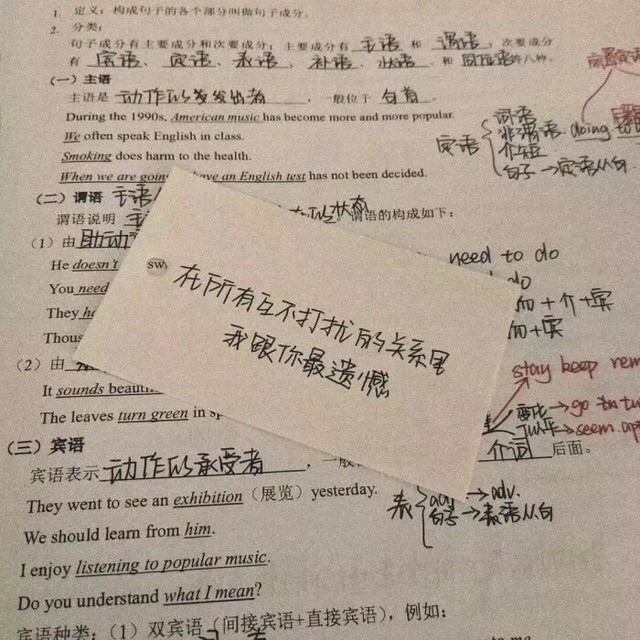 1. 定义：构成句子的各个部分叫做句子成分。
2. 分类：
句子成分有主要成分和次要成分；主要成分有 主语 和 谓语；次要成分
有 宾语、定语、表语、补语、状语、和 同位语等八种。
（一）主语
主语是 动作的发出者，一般位于 句首。
During the 1990s, American music has become more and more popular.
We often speak English in class.
Smoking does harm to the health.
When we are going have an English test has not been decided.
定语
词语
非谓语 doing to
介短
句子→定语从句
（二）谓语
谓语说明 状态 谓语的构成如下：
（1）由 助动
He doesn't
You need
They
Thous
need to do
do
+介+宾
+宾
SW
在所有互不打扰的关系里
我跟你最遗憾
（2）由
It sounds beauti
The leaves turn green in sp
stay keep rem
变化→go tn tu
→seem. ap
（三）宾语
介词 后面。
宾语表示 动作的承受者，一般
They went to see an exhibition（展览）yesterday.
表
adj →adv.
句子→表语从句
We should learn from him.
I enjoy listening to popular music.
Do you understand what I mean?
宾语种类：（1）双宾语（间接宾语+直接宾语），例如：
to me